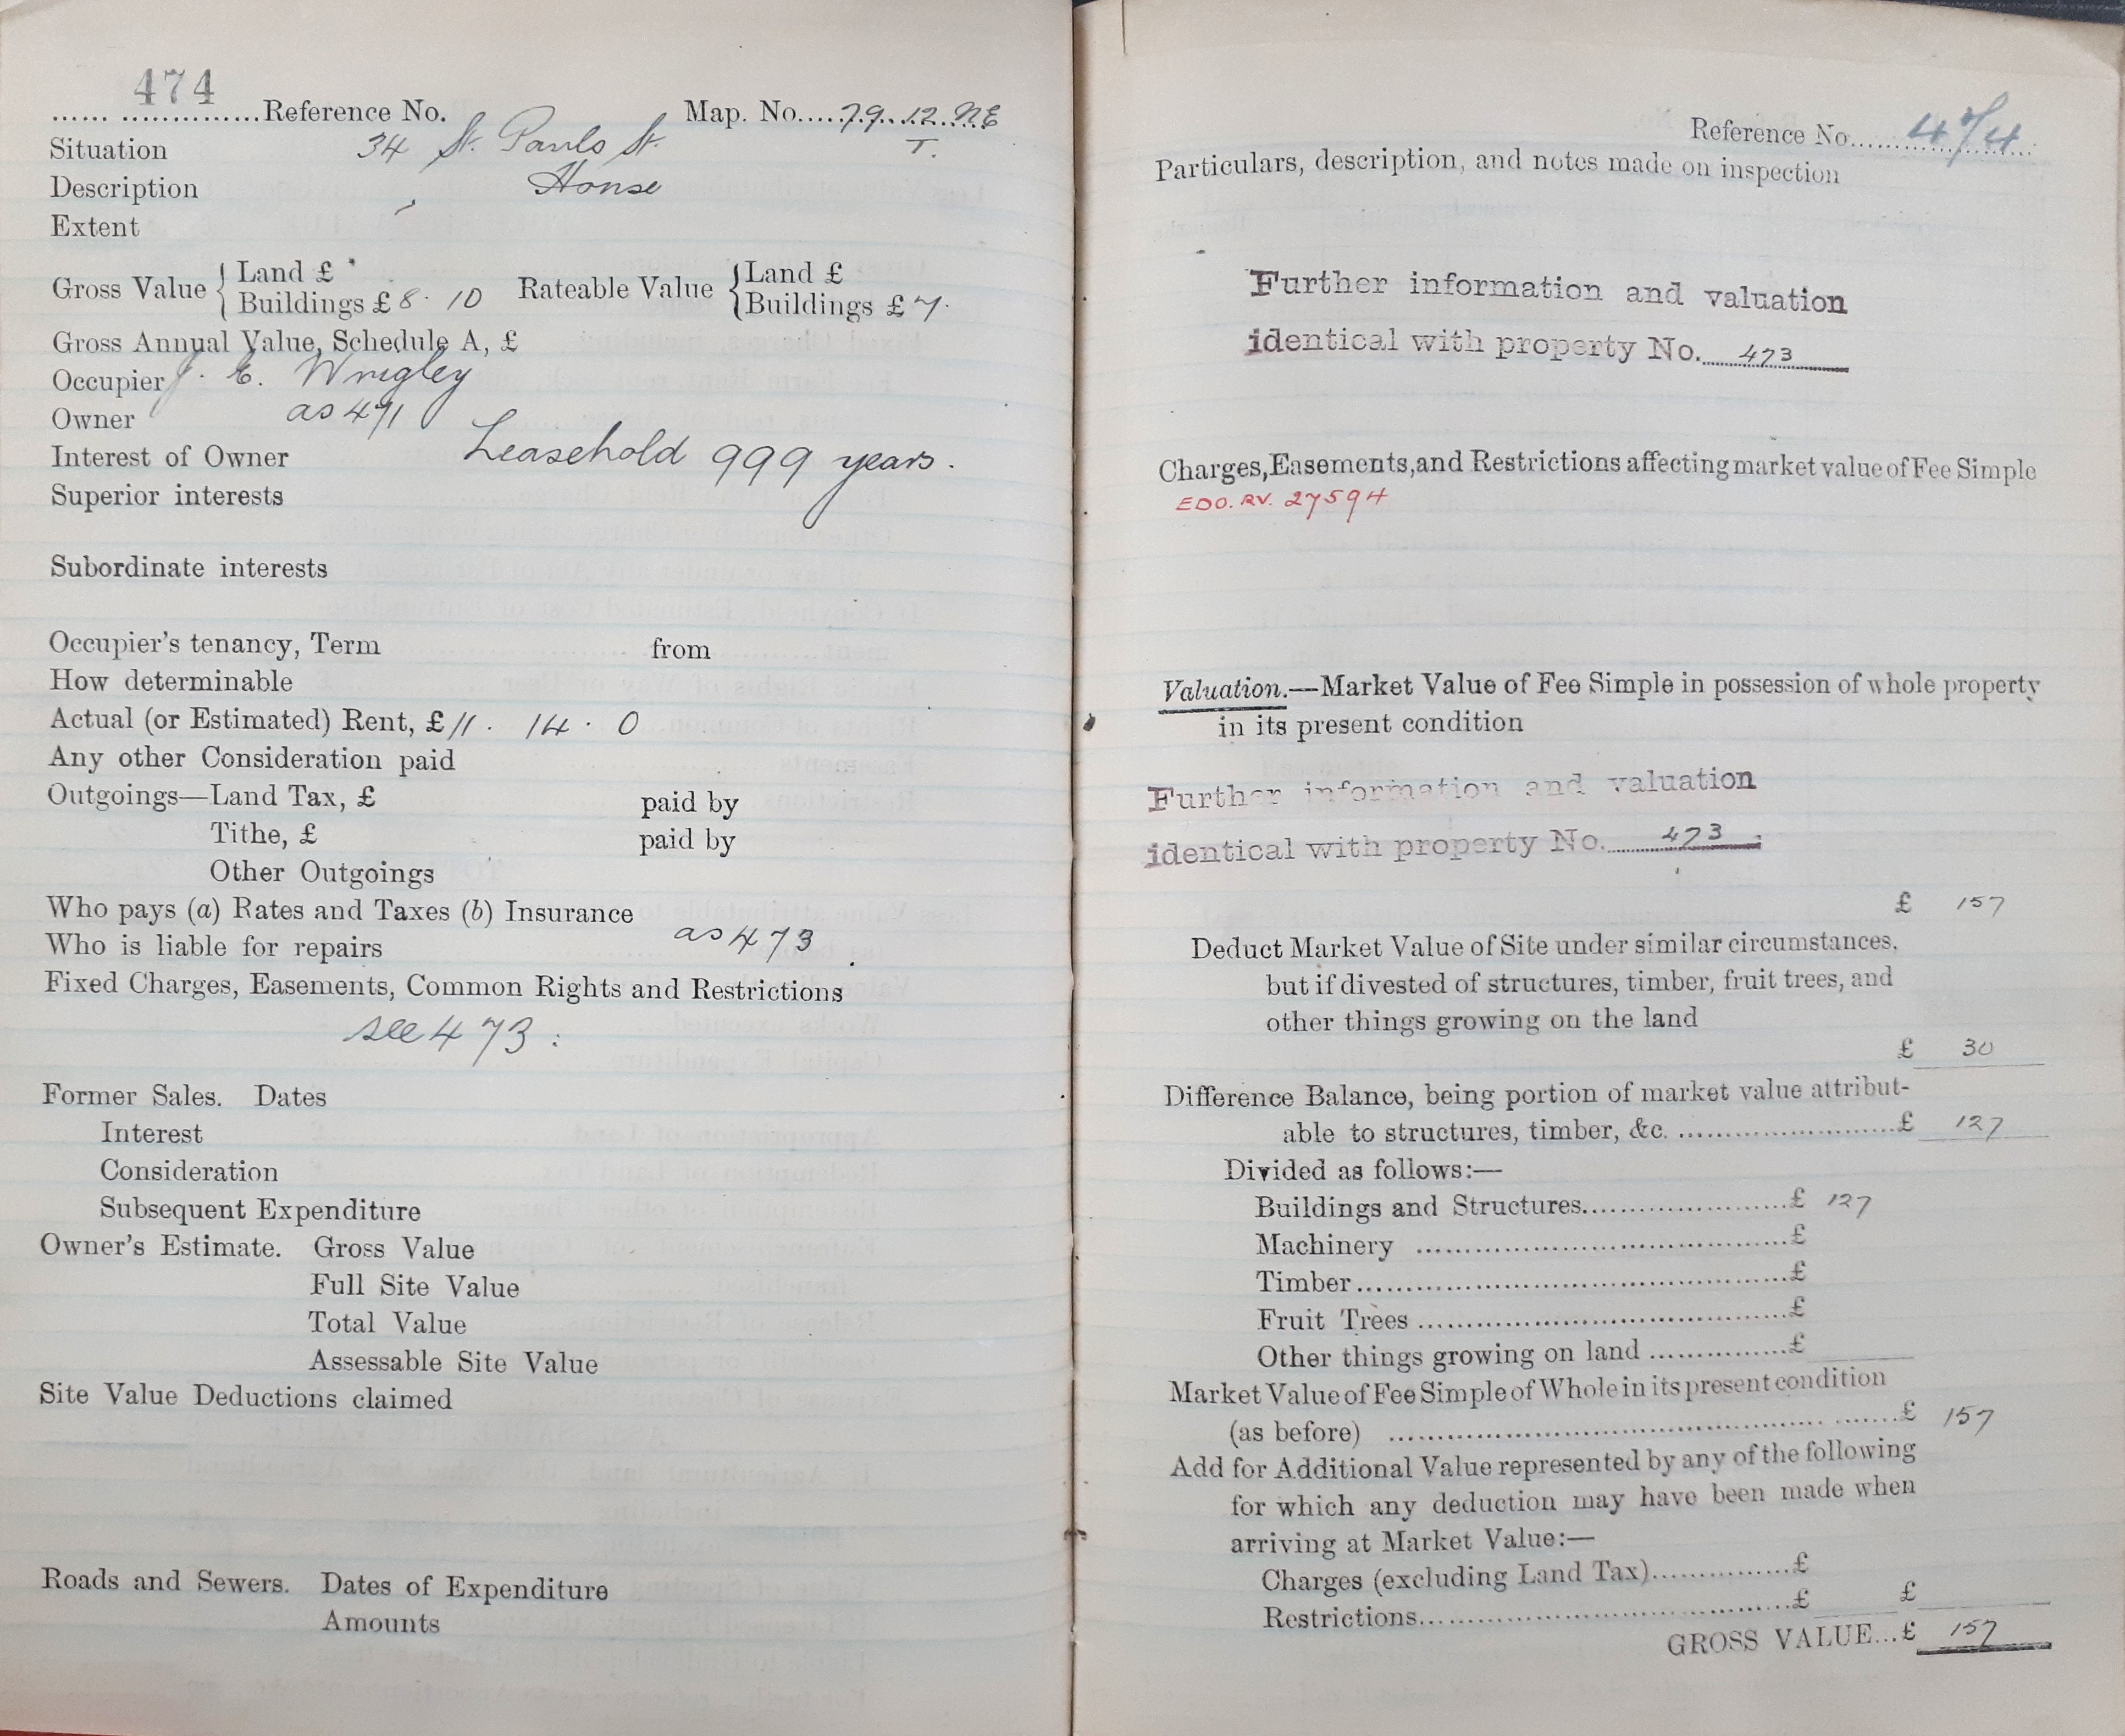 474
...... ..............Reference No. Map. No.....79..12.NE
Situation 34 St. Pauls St. T.
Description House
Extent
Gross Value { Land £ Rateable Value { Land £
Buildings £ 8. 10 Buildings £ 7.
Gross Annual Value, Schedule A, £
Occupier J. E. Wrigley
Owner as 471
Interest of Owner Leasehold 999 years.
Superior interests
Subordinate interests
Occupier's tenancy, Term from
How determinable
Actual (or Estimated) Rent, £ 11. 14. 0
Any other Consideration paid
Outgoings—Land Tax, £ paid by
Tithe, £ paid by
Other Outgoings
Who pays (a) Rates and Taxes (b) Insurance
Who is liable for repairs as 473
Fixed Charges, Easements, Common Rights and Restrictions
see 473.
Former Sales. Dates
Interest
Consideration
Subsequent Expenditure
Owner's Estimate. Gross Value
Full Site Value
Total Value
Assessable Site Value
Site Value Deductions claimed
Roads and Sewers. Dates of Expenditure
Amounts
Reference No. 474
Particulars, description, and notes made on inspection
Further information and valuation
identical with property No. 473
Charges, Easements, and Restrictions affecting market value of Fee Simple
EDO. RV. 27594
Valuation.—Market Value of Fee Simple in possession of whole property
in its present condition
Further information and valuation
identical with property No. 473
£ 157
Deduct Market Value of Site under similar circumstances,
but if divested of structures, timber, fruit trees, and
other things growing on the land
£ 30
Difference Balance, being portion of market value attribut-
able to structures, timber, &c. ........................£ 127
Divided as follows:—
Buildings and Structures........................£ 127
Machinery ........................£
Timber........................£
Fruit Trees ........................£
Other things growing on land ................£
Market Value of Fee Simple of Whole in its present condition
(as before) ........................£ 157
Add for Additional Value represented by any of the following
for which any deduction may have been made when
arriving at Market Value:—
Charges (excluding Land Tax)................£
Restrictions........................£ £
GROSS VALUE...£ 157